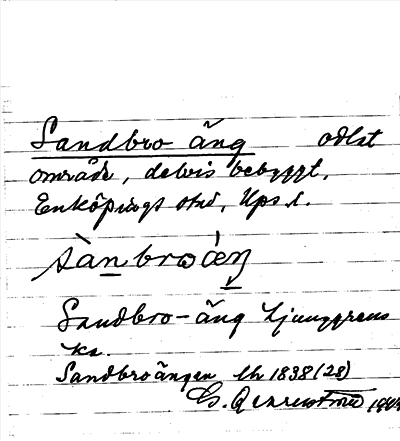 Sandbro äng odlat
område, delvis bebyggt,
Enköpings stad, Ups. l.
sànbroæŋ
Sandbro-äng Ljunggrens
ka.
Sandbroängen lh 1838 (28)